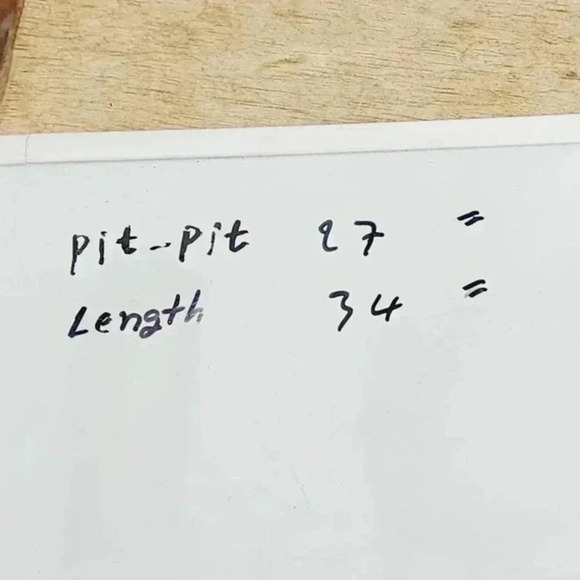 pit-pit 27 "
Length 34 "